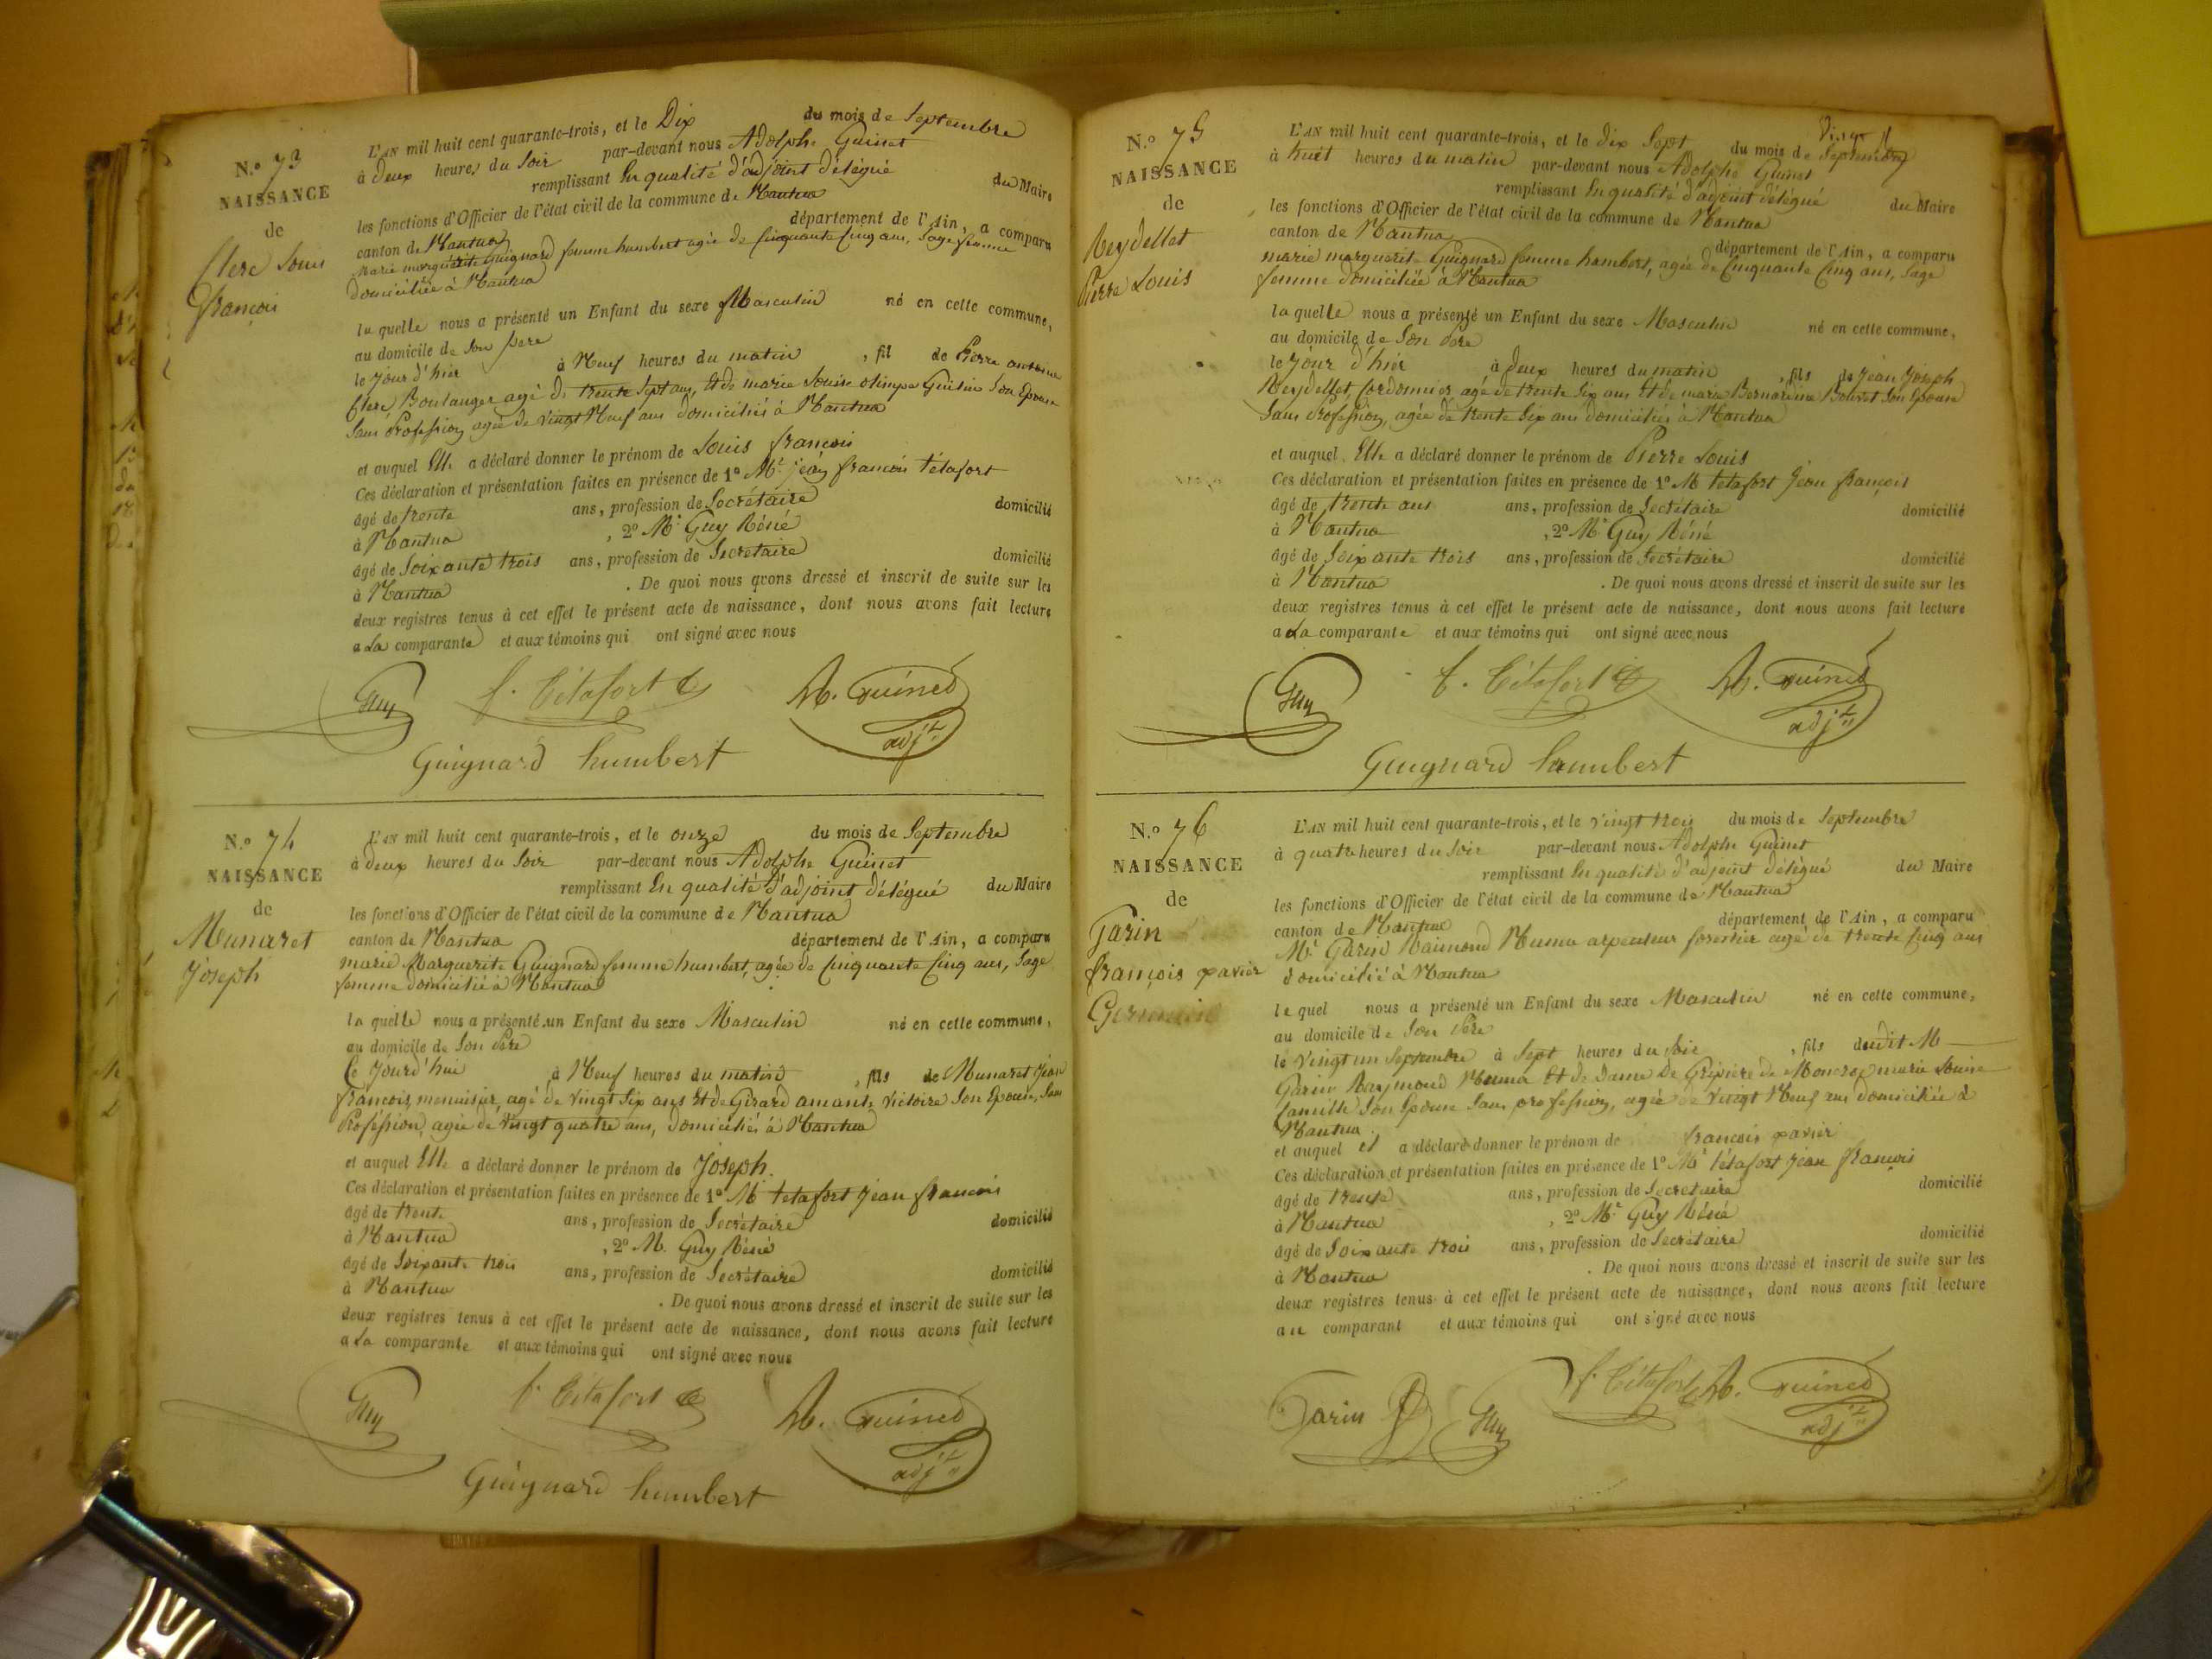 N.o 73
NAISSANCE
de
Clerc Louis
françois
L'AN mil huit cent quarante-trois, et le Dix du mois de Septembre
à deux heures du Soir par-devant nous Adolphe Guinet
remplissant En qualité d'adjoint délégué du Maire
les fonctions d'Officier de l'état civil de la commune de Nantua
canton de Nantua département de l'Ain, a comparu
Marie marguerite Guignard femme humbert agée de Cinquante Cinq ans, Sage femme
domiciliée à Nantua
la quelle nous a présenté un Enfant du sexe Masculin né en cette commune,
au domicile de Son père
le Jour d'hier à Neuf heures du matin, fil de Pierre antoine
Clerc, Boulanger agé de trente Sept ans, Et de marie Louise olimpe Son Epouse
Sans Profession, agée de vingt Neuf ans domiciliés à Nantua
et auquel Elle a déclaré donner le prénom de Louis françois
Ces déclaration et présentation faites en présence de 1o Mr. jean françois tétafort
âgé de trente ans, profession de Secrétaire domicilié
à Nantua, 2o Mr. Guy Réné
âgé de Soixante trois ans, profession de Secrétaire domicilié
à Nantua. De quoi nous avons dressé et inscrit de suite sur les
deux registres tenus à cet effet le présent acte de naissance, dont nous avons fait lecture
a La comparante et aux témoins qui ont signé avec nous
Guy f. Tétafort A. Guinet
adjt
Guignard humbert
N.o 74
NAISSANCE
de
Munaret
Joseph
L'AN mil huit cent quarante-trois, et le onze du mois de Septembre
à deux heures du Soir par-devant nous Adolphe Guinet
remplissant En qualité d'adjoint délégué du Maire
les fonctions d'Officier de l'état civil de la commune de Nantua
canton de Nantua département de l'Ain, a comparu
marie Marguerite Guignard femme humbert, agée de Cinquante Cinq ans, Sage
femme domiciliée à Nantua
la quelle nous a présenté un Enfant du sexe Masculin né en cette commune,
au domicile de Son Père
Ce Jourd'hui à Neuf heures du matin, fils de Munaret Jean
françois, menuisier, agé de vingt Six ans Et de Girard amante Victoire Son Epouse, Sans
Profession, agée de vingt quatre ans, domiciliés à Nantua
et auquel Elle a déclaré donner le prénom de Joseph.
Ces déclaration et présentation faites en présence de 1o M tetafort jean françois
âgé de trente ans, profession de Secrétaire domicilié
à Nantua, 2o M. Guy Réné
âgé de Soixante trois ans, profession de Secrétaire domicilié
à Nantua. De quoi nous avons dressé et inscrit de suite sur les
deux registres tenus à cet effet le présent acte de naissance, dont nous avons fait lecture
a La comparante et aux témoins qui ont signé avec nous
Guy f. Tétafort A. Guinet
adjt
Guignard humbert
N.o 75
NAISSANCE
de
Reydellet
Pierre Louis
L'AN mil huit cent quarante-trois, et le dix Sept du mois de Septembre
à huit heures du matin par-devant nous Adolphe Guinet
remplissant En qualité d'adjoint délégué du Maire
les fonctions d'Officier de l'état civil de la commune de Nantua
canton de Nantua département de l'Ain, a comparu
marie marguerite Guignard femme humbert, agée de Cinquante Cinq ans, Sage
femme domiciliée à Nantua
la quelle nous a présenté un Enfant du sexe Masculin né en cette commune,
au domicile de Son Père
le Jour d'hier à deux heures du matin, fils de Jean Joseph
Reydellet, Cordonnier, agé de trente Six ans Et de marie Bernardine Son Epouse
Sans Profession, agée de trente Six ans domiciliés à Nantua
et auquel Elle a déclaré donner le prénom de Pierre Louis
Ces déclaration et présentation faites en présence de 1o M tetafort jean françois
âgé de trente ans ans, profession de Secrétaire domicilié
à Nantua, 2o Mr Guy Réné
âgé de Soixante trois ans, profession de Secrétaire domicilié
à Nantua. De quoi nous avons dressé et inscrit de suite sur les
deux registres tenus à cet effet le présent acte de naissance, dont nous avons fait lecture
a La comparante et aux témoins qui ont signé avec nous
Guy f. Tétafort A. Guinet
adjt
Guignard humbert
N.o 76
NAISSANCE
de
Garin
françois xavier
Germain
L'AN mil huit cent quarante-trois, et le vingt trois du mois de Septembre
à quatre heures du Soir par-devant nous Adolphe Guinet
remplissant En qualité d'adjoint délégué du Maire
les fonctions d'Officier de l'état civil de la commune de Nantua
canton de Nantua département de l'Ain, a comparu
Mr. Garin Raimond Numa arpenteur forestier agé de trente Cinq ans
domicilié à Nantua
le quel nous a présenté un Enfant du sexe Masculin né en cette commune,
au domicile de Son Père
le Vingt un Septembre à Sept heures du Soir, fils dudit M
Garin Raymond Numa Et de Dame De de Moncroc marie Louise
Camille Son Epouse Sans profession, agée de Vingt Neuf ans domiciliée à
Nantua.
et auquel il a déclaré donner le prénom de françois xavier
Ces déclaration et présentation faites en présence de 1o Mr tétafort jean françois
âgé de trente ans, profession de Secrétaire domicilié
à Nantua, 2o Mr. Guy Réné
âgé de Soixante trois ans, profession de Secrétaire domicilié
à Nantua. De quoi nous avons dressé et inscrit de suite sur les
deux registres tenus à cet effet le présent acte de naissance, dont nous avons fait lecture
au comparant et aux témoins qui ont signé avec nous
Garin Guy f. Tétafort A. Guinet
adjt